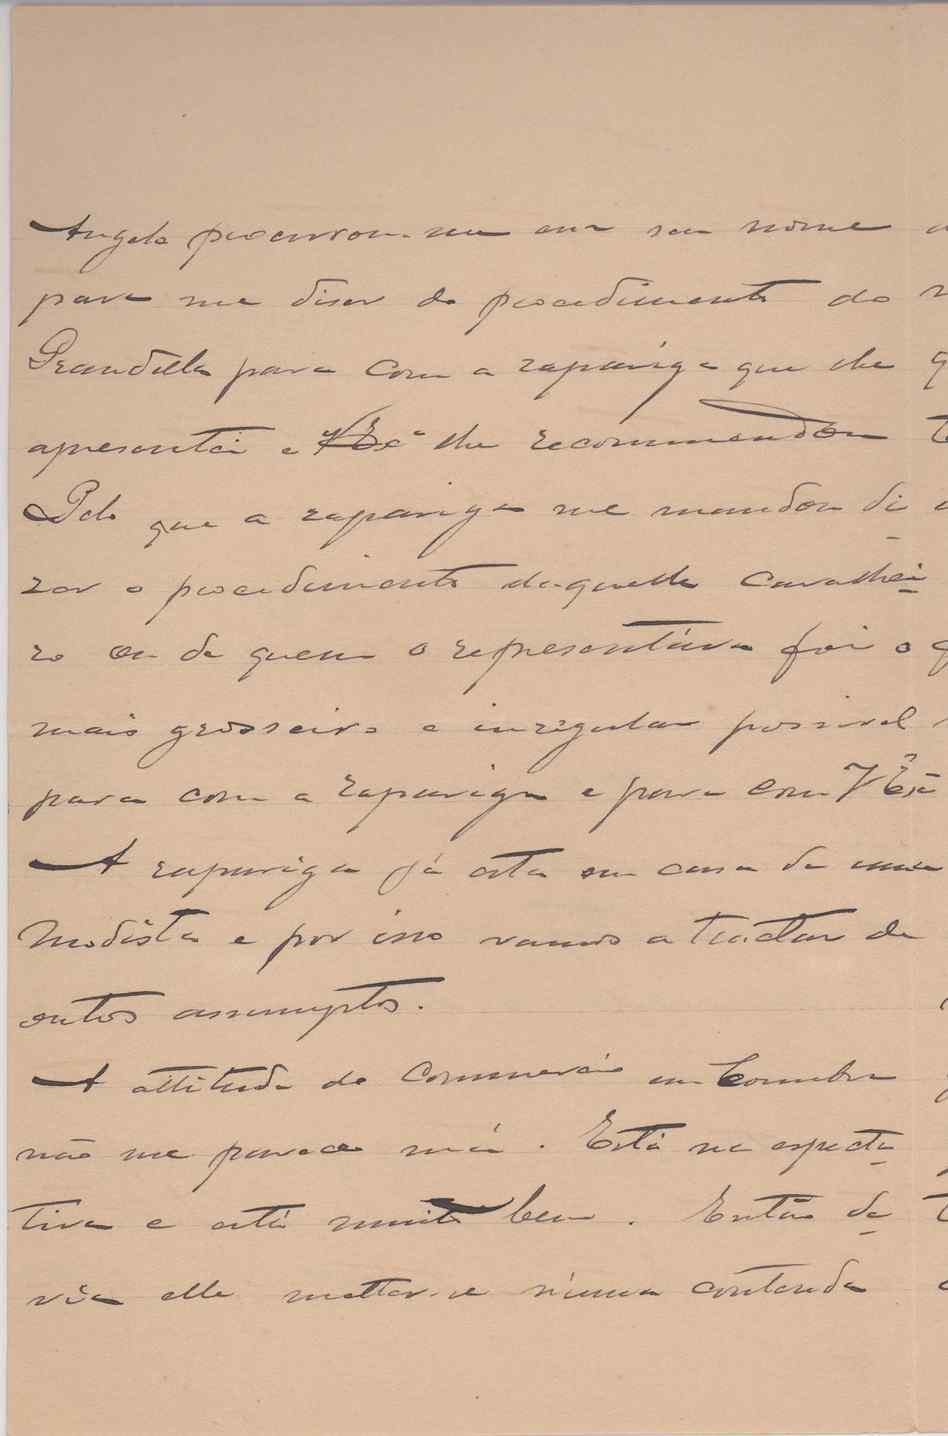 Angelo procurou-me em seu nome
para me diser do procedimento do
Grandella para com a rapariga que lhe
apresentei e VExª lhe recommendou
Pelo que a rapariga me mandou di
zer o procedimento daquelle cavalhei
ro ou de quem o representáva foi o
mais grosseiro e irregular possivel
para com a rapariga e para com VExª
A rapariga já está em casa de uma
Modista e por isso vamos a tractar de
outros assumptos.
A attitude do Commercio em Coimbra
não me parece má. Está na especta
tiva e está muito bem. Então de
via elle metter-se n'uma contenda